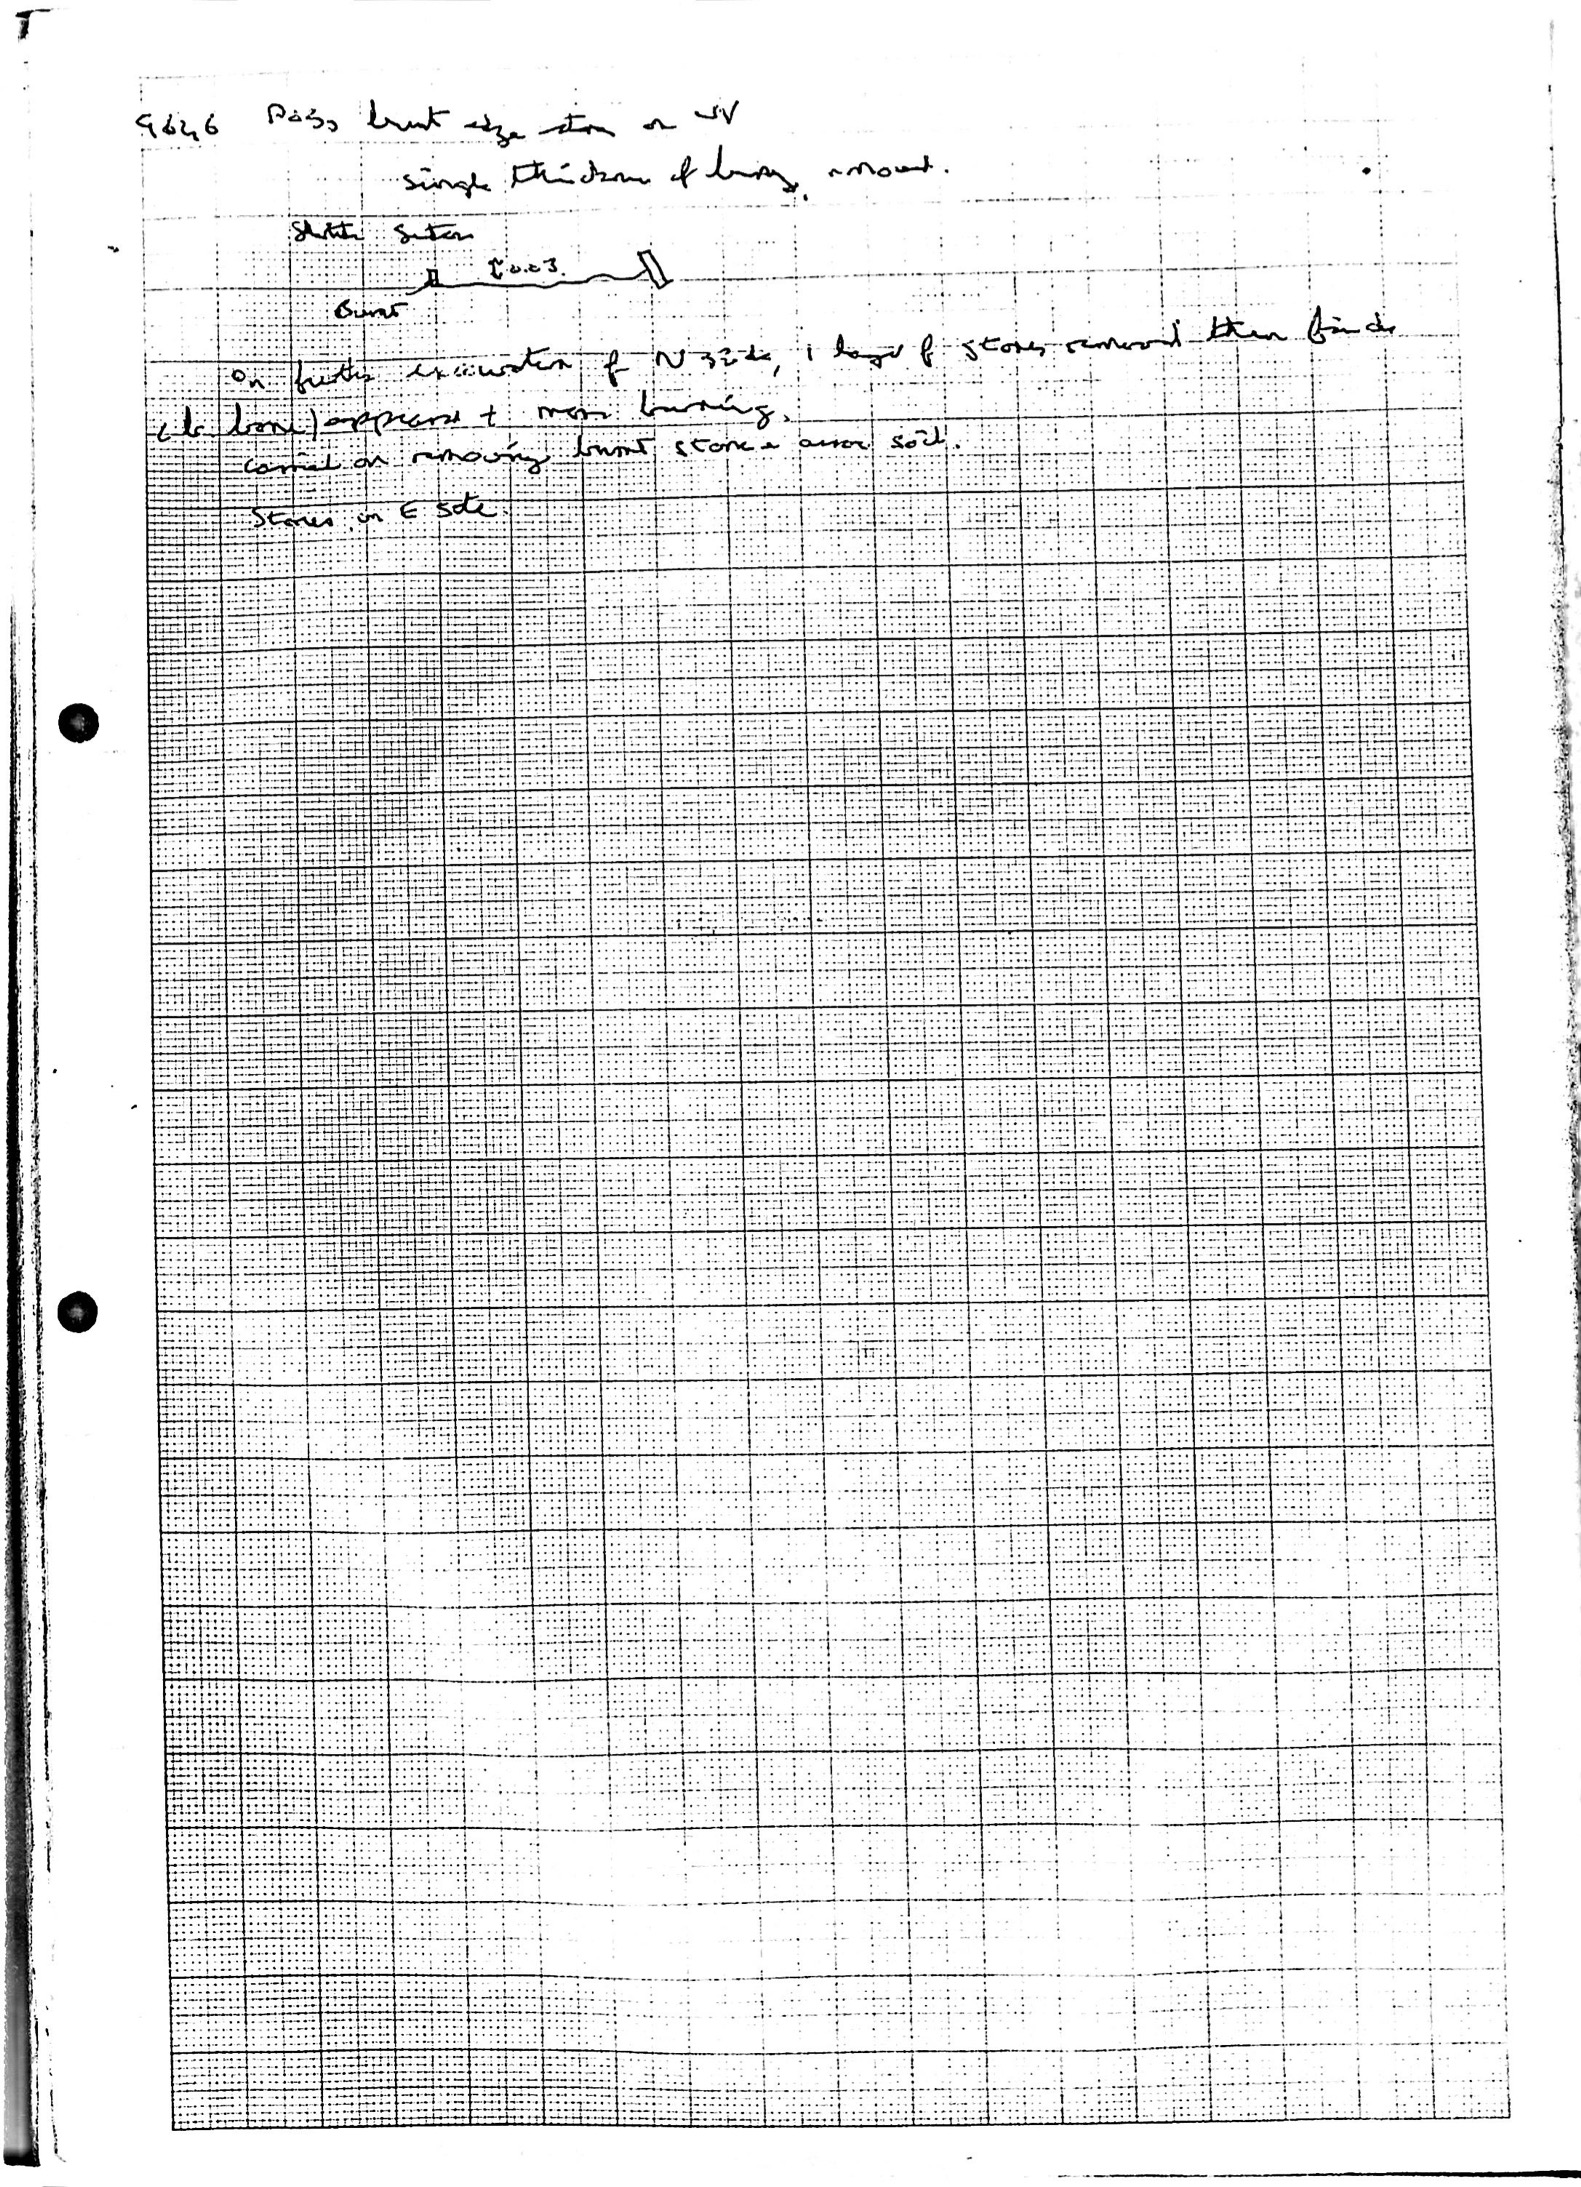 burnt edge stone on
single thickness of burning removed.
Sketch Section
0.03.
Burnt
On further excavation of N side, 1 layer of stones removed then finds
bone) appeared + more burning.
carried on removing burnt stone + soil.
Stones on E side.